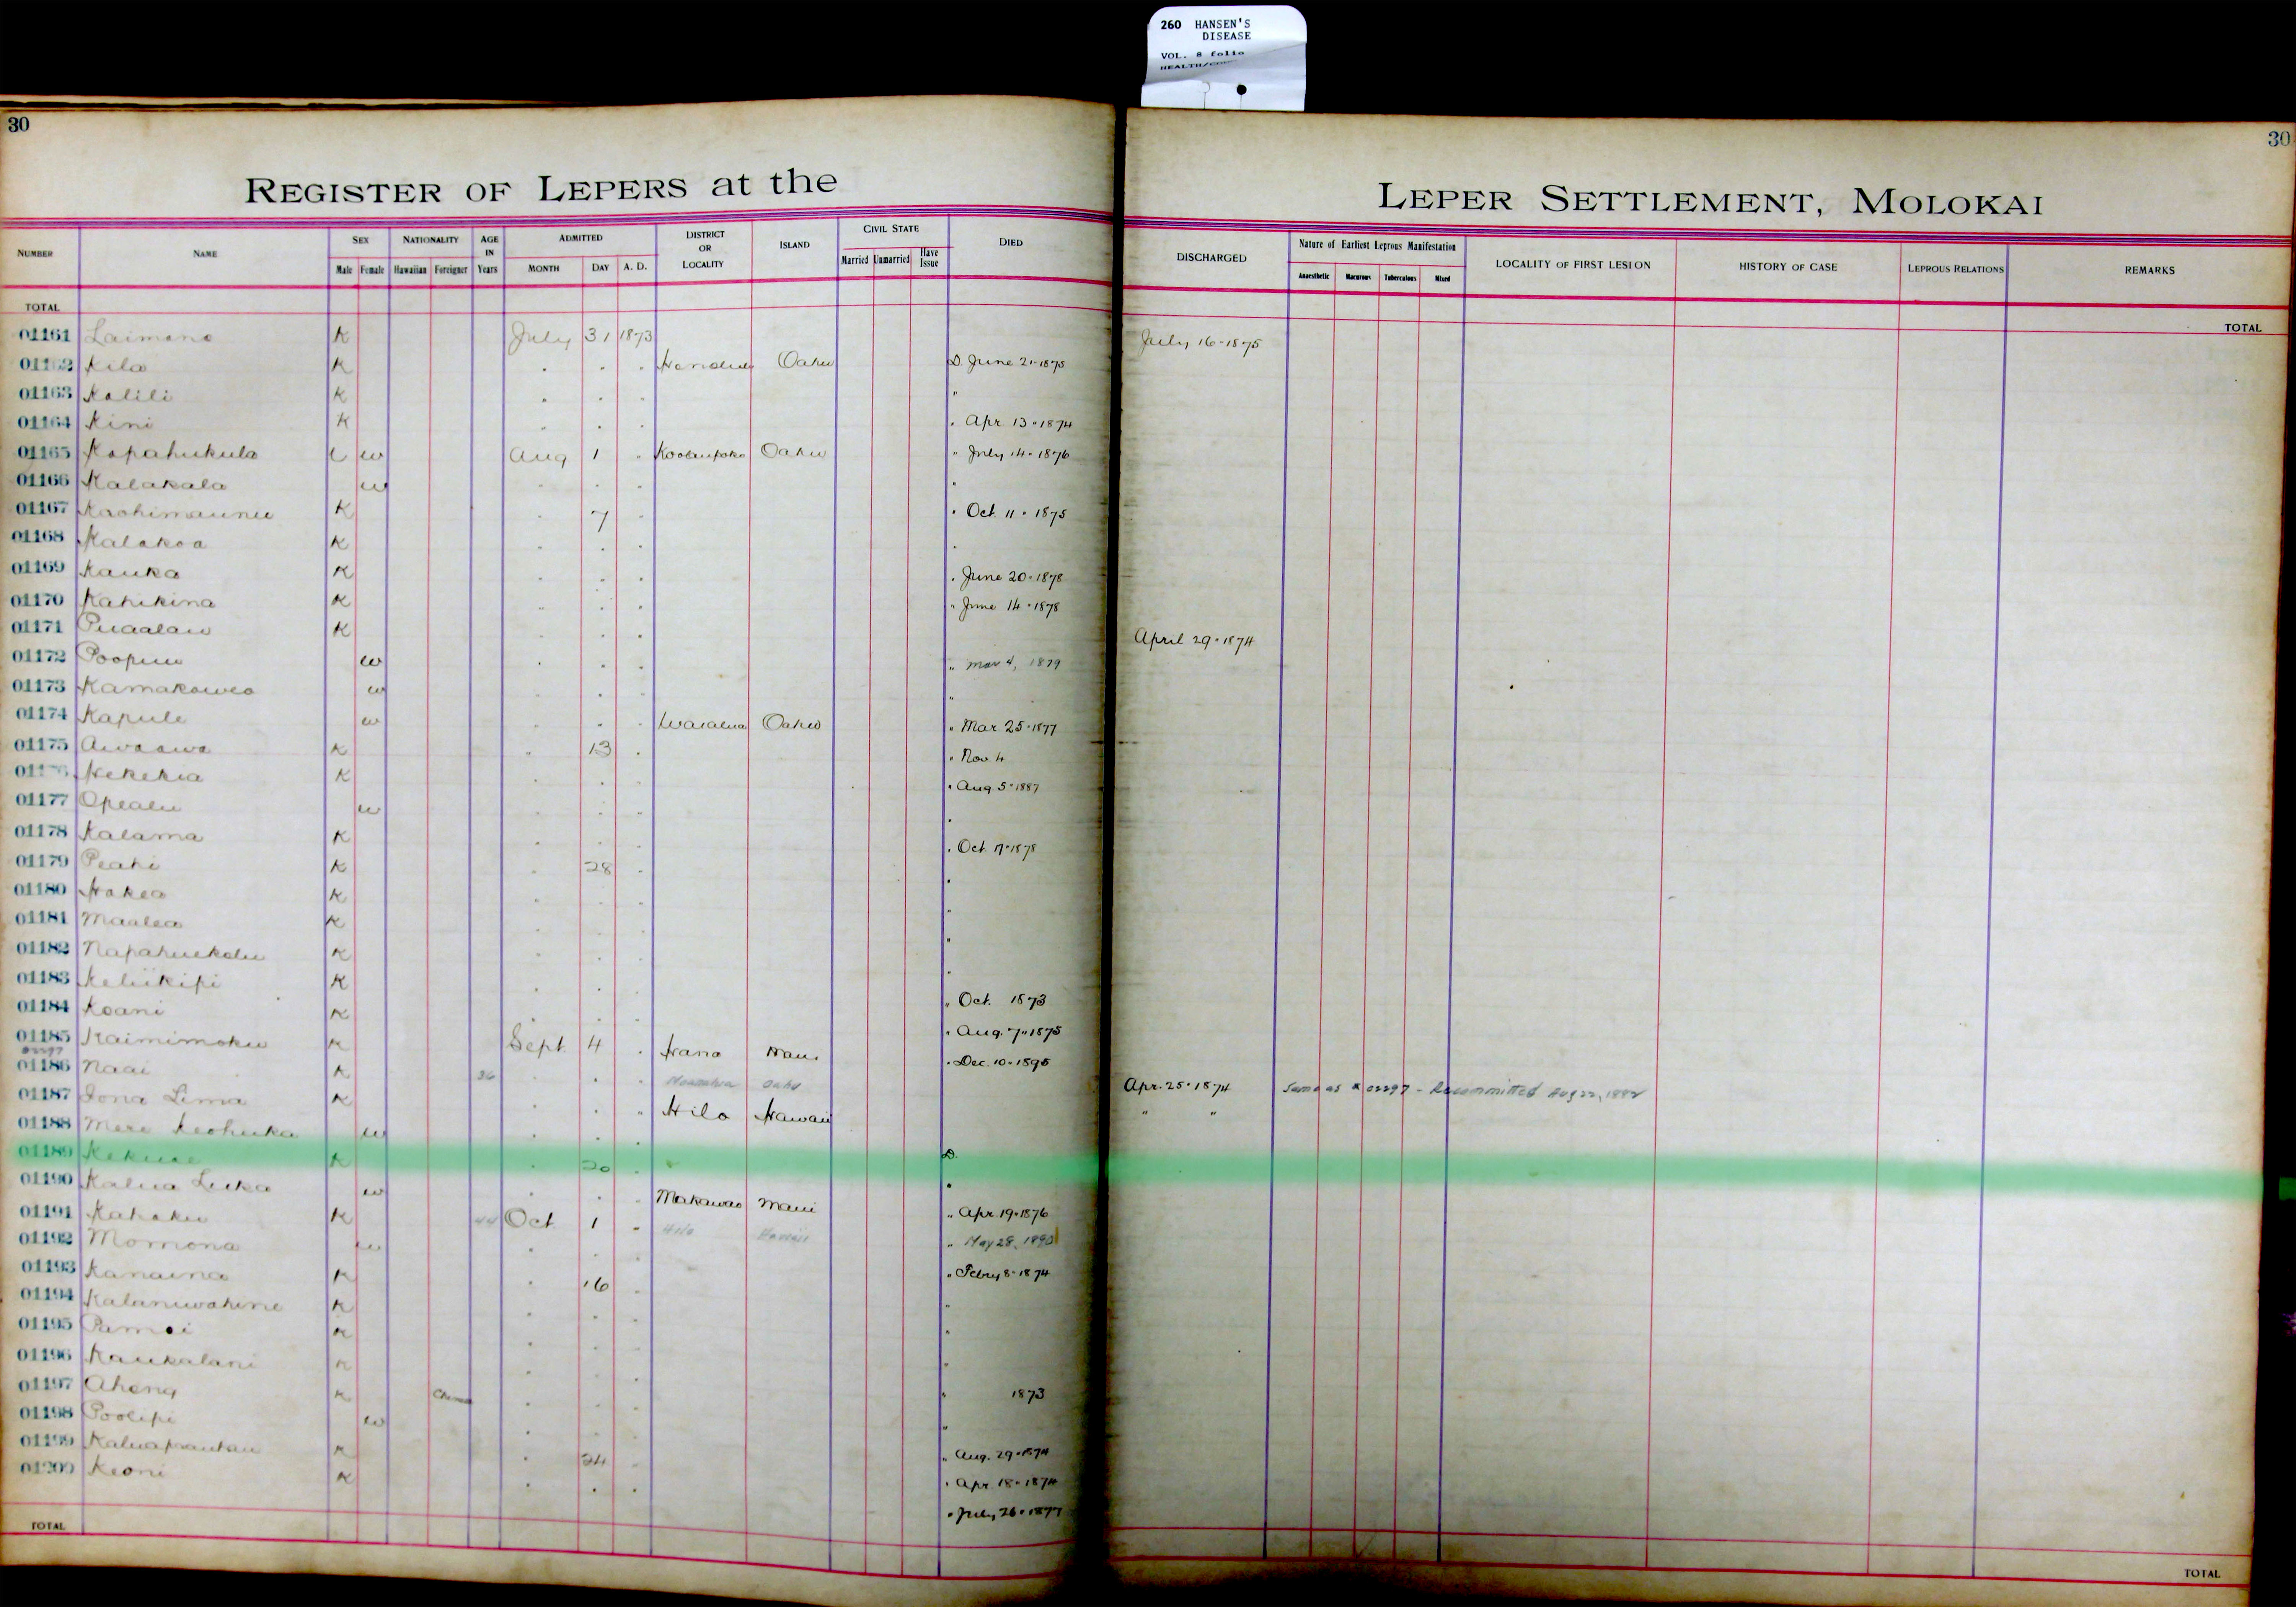 260 HANSEN'S
DISEASE
VOL. 8 folio
30
30
REGISTER OF LEPERS at the
LEPER SETTLEMENT, MOLOKAI
NUMBER NAME SEX NATIONALITY AGE IN Years ADMITTED DISTRICT OR LOCALITY ISLAND CIVIL STATE DIED
Male Female Hawaiian Foreigner MONTH DAY A. D. Married Unmarried Have Issue
DISCHARGED Nature of Earliest Leprous Manifestation LOCALITY OF FIRST LESION HISTORY OF CASE LEPROUS RELATIONS REMARKS
Anaesthetic Macurous Tuberculous Mixed
TOTAL
TOTAL
01161 Laimana K July 31 1873 July 16-1875
01162 Kila K . . . Honolulu Oahu D. June 21-1875
01163 Kalili K . . . "
01164 Kini K . . . . Apr 13-1874
01165 Kapahukula w Aug 1 . Koolaupoko Oahu " July 14-1876
01166 Kalakala w . . . .
01167 Kaohimaunu K . 7 . . Oct 11-1875
01168 Kalakoa K . . . .
01169 Kauka K . . . . June 20-1878
01170 Kahikina K . . . " June 14-1878
01171 Puaalau K . . . April 29-1874
01172 Poopuu w . . . " Mar 4, 1879
01173 Kamakawea w . . . "
01174 Kapule w . . . Waialua Oahu " Mar 25-1877
01175 Awaawa K . 13 . . Nov. 4
Hekekia K . . . . Aug 5-1887
01177 Opealu w . . . .
01178 Kalama K . . . . Oct 17-1878
01179 Peahi K . 28 . .
01180 Hakea K . . . "
01181 Maalea K . . . .
01182 Napahuekolu K . . . "
01183 Keliikipi K . . . " Oct. 1873
01184 Koani K . . . " Aug. 7-1875
01185 Kaimimoku K Sept 4 . Hana Maui . Dec. 10-1895
01186 Naai K 36 . . . Oahu Apr. 25-1874 Same as # 02297 - Recommitted Aug 22, 1882
01187 Iona Lima K . . " Hilo Hawaii " "
01188 Mere Keohuka w . . .
01189 Kekuae K . 20 . D.
01190 Kalua Luka w . . . Makawao Maui .
01191 Kahaku K 44 Oct 1 . Hilo Hawaii " Apr 19-1876
01192 Momona w . . . " May 28, 1890
01193 Kanaina K . 16 . " Febry 8-1874
01194 Kalaniwahine K . . . "
01195 K . . . "
01196 Kaukalani K . . . "
01197 Aheng K . . . " 1873
01198 Poolipi w . . . "
01199 K . 24 . " Aug. 29-1874
01200 Keoni K . . . . Apr 18-1874
. July 26-1877
TOTAL
TOTAL